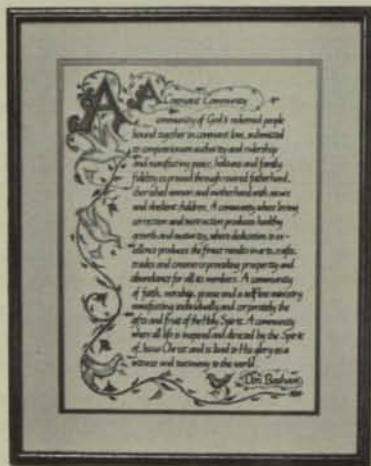 A Covenant Community
A community of God's redeemed people
bound together in covenant love, submitted
to compassionate authority and rulership
and manifesting peace, holiness and family
fidelity expressed through revered fatherhood,
cherished woman and motherhood with secure
and obedient children. A community where loving
correction and instruction produces healthy
growth and maturity; where dedication to ex-
cellence produces the finest results in arts, crafts,
trades and commerce providing prosperity and
abundance for all its members. A community
of faith, worship, praise and a selfless ministry
manifesting individually and corporately the
gifts and fruit of the Holy Spirit. A community
where all life is inspired and directed by the Spirit
of Jesus Christ and is lived to His glory as a
witness and testimony to the world.
Don Basham